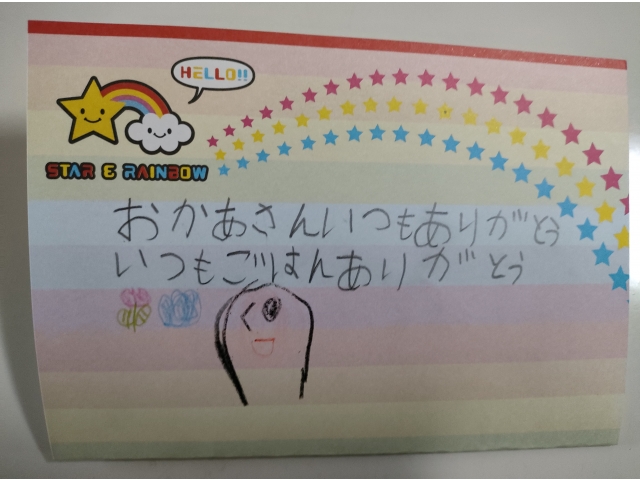 HELLO!!
STAR & RAINBOW
おかあさんいつもありがとう
いつもごはんありがとう